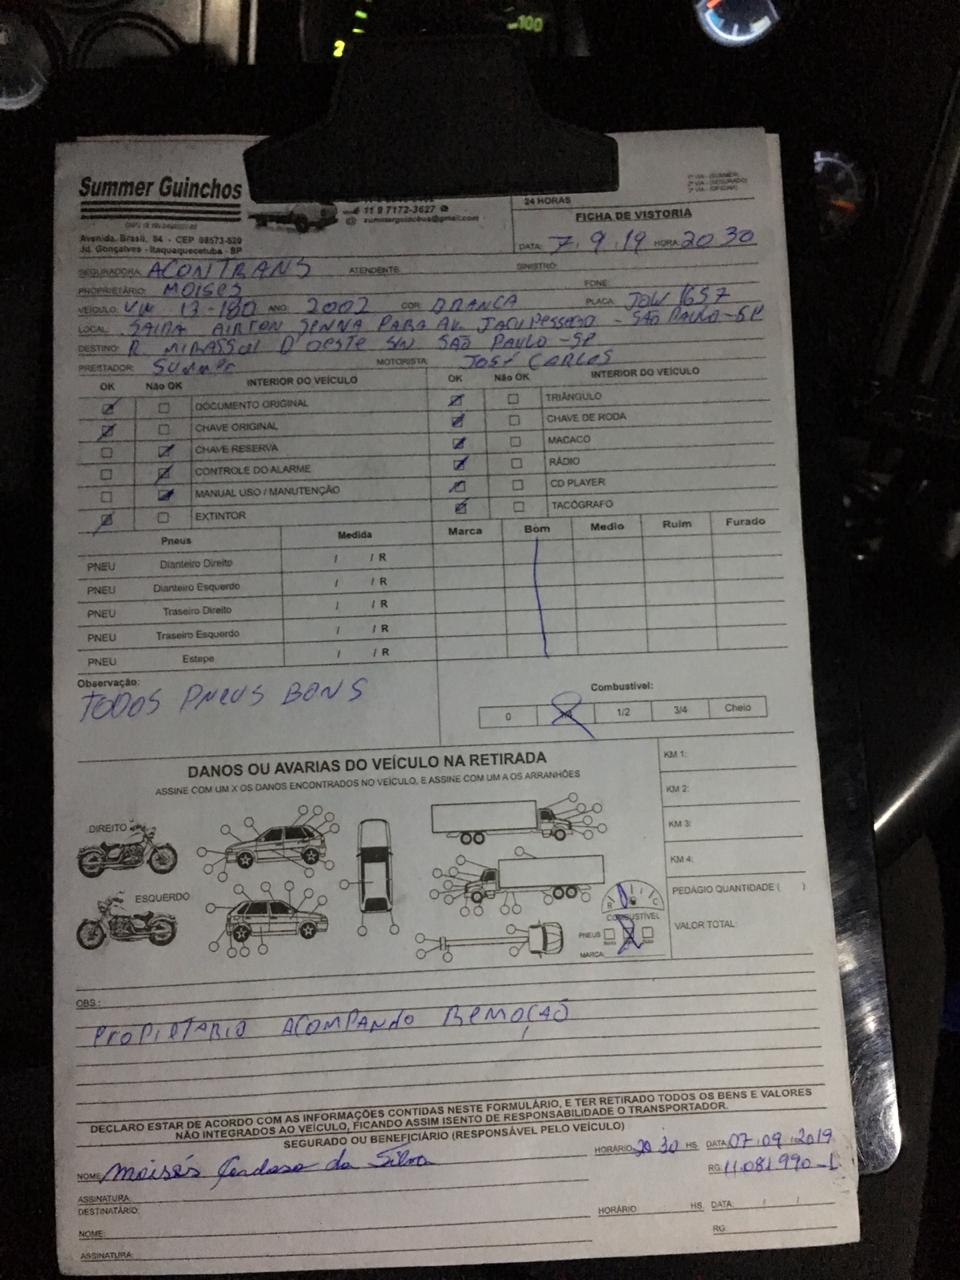 100
Summer Guinchos
11 9 7172-3627
summerguinchos@gmail.com
Avenida, Brasil, 84 - CEP 08573-520
Jd. Gonçalves - Itaquaquecetuba - SP
24 HORAS
FICHA DE VISTORIA
DATA: 7.9.19 HORA: 20 30
SEGURADORA: ACONTRANS ATENDENTE: SINISTRO:
PROPRIETÁRIO: MOISES FONE:
VEÍCULO: VW 13-180 ANO: 2002 COR: BRANCA PLACA: JOW 1657
LOCAL: SAIDA AIRTON SENNA PARA AV. JACU PESSEGO - SÃO PAULO-SP
DESTINO: R. MIRASSOL D'OESTE SN SÃO PAULO-SP
PRESTADOR: SUMMER MOTORISTA: JOSÉ CARLOS
OK Não OK INTERIOR DO VEÍCULO OK Não OK INTERIOR DO VEÍCULO
DOCUMENTO ORIGINAL TRIÂNGULO
CHAVE ORIGINAL CHAVE DE RODA
CHAVE RESERVA MACACO
CONTROLE DO ALARME RÁDIO
MANUAL USO / MANUTENÇÃO CD PLAYER
EXTINTOR TACÓGRAFO
Pneus Medida Marca Bom Medio Ruim Furado
PNEU Dianteiro Direito / / R
PNEU Dianteiro Esquerdo / / R
PNEU Traseiro Direito / / R
PNEU Traseiro Esquerdo / / R
PNEU Estepe / / R
Observação:
TODOS PNEUS BONS
Combustível:
0 1/4 1/2 3/4 Cheio
DANOS OU AVARIAS DO VEÍCULO NA RETIRADA
ASSINE COM UM X OS DANOS ENCONTRADOS NO VEÍCULO, E ASSINE COM UM A OS ARRANHÕES
KM 1:
KM 2:
KM 3:
KM 4:
DIREITO
ESQUERDO
PEDÁGIO QUANTIDADE ( )
VALOR TOTAL:
R C
COMBUSTÍVEL
PNEUS
MARCA:
OBS.:
PROPIETARIO ACOMPANDO REMOÇÃO
DECLARO ESTAR DE ACORDO COM AS INFORMAÇÕES CONTIDAS NESTE FORMULÁRIO, E TER RETIRADO TODOS OS BENS E VALORES
NÃO INTEGRADOS AO VEÍCULO, FICANDO ASSIM ISENTO DE RESPONSABILIDADE O TRANSPORTADOR.
SEGURADO OU BENEFICIÁRIO (RESPONSÁVEL PELO VEÍCULO)
HORÁRIO 20 30 HS DATA: 07.09.2019
NOME Moisés Cardoso da Silva RG: 11.081.990-1
ASSINATURA:
DESTINATÁRIO: HORÁRIO HS. DATA: / /
NOME: RG:
ASSINATURA: